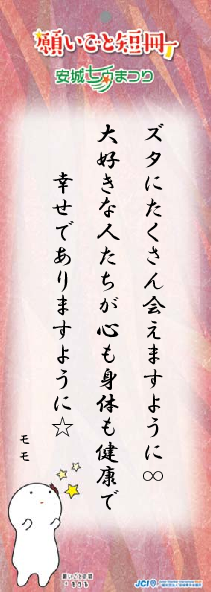 願いごと短冊
安城七夕まつり
ズタにたくさん会えますように∞
大好きな人たちが心も身体も健康で
幸せでありますように☆
モモ
願いごと短冊
JCI